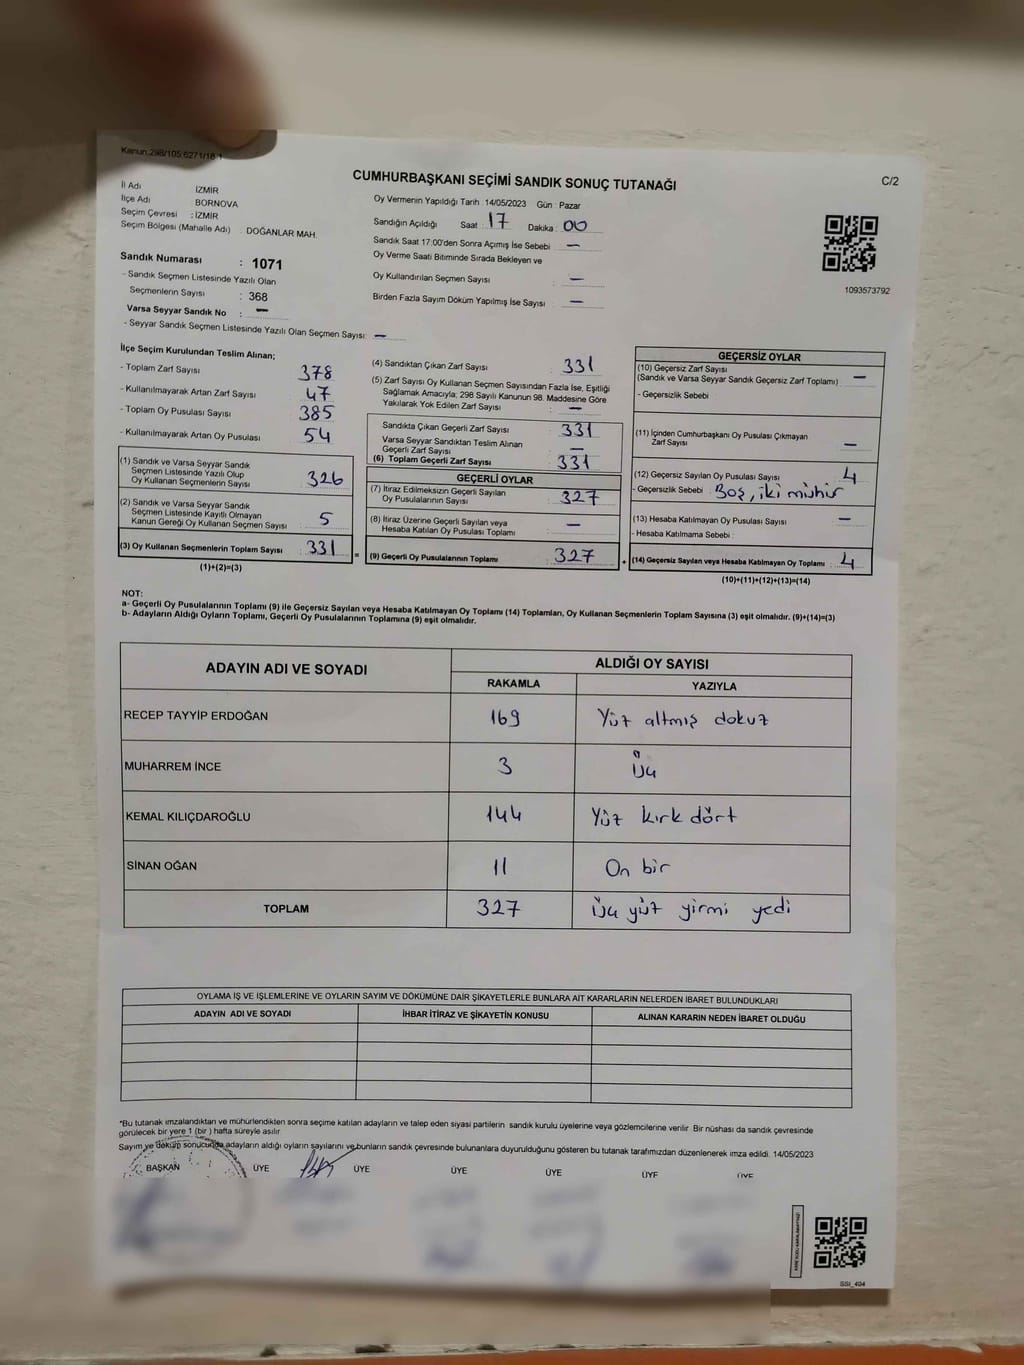 Kanun:298/105;6271/18 1
CUMHURBAŞKANI SEÇİMİ SANDIK SONUÇ TUTANAĞI
C/2
İl Adı İZMİR
İlçe Adı BORNOVA
Seçim Çevresi : İZMİR
Seçim Bölgesi (Mahalle Adı) : DOĞANLAR MAH.
Sandık Numarası : 1071
- Sandık Seçmen Listesinde Yazılı Olan
Seçmenlerin Sayısı : 368
Varsa Seyyar Sandık No : —
- Seyyar Sandık Seçmen Listesinde Yazılı Olan Seçmen Sayısı: —
Oy Vermenin Yapıldığı Tarih :14/05/2023 Gün : Pazar
Sandığın Açıldığı Saat 17 Dakika : 00
Sandık Saat 17:00'den Sonra Açımış İse Sebebi : —
Oy Verme Saati Bitiminde Sırada Bekleyen ve
Oy Kullandırılan Seçmen Sayısı : —
Birden Fazla Sayım Döküm Yapılmış İse Sayısı : —
1093573792
İlçe Seçim Kurulundan Teslim Alınan;
- Toplam Zarf Sayısı : 378
- Kullanılmayarak Artan Zarf Sayısı : 47
- Toplam Oy Pusulası Sayısı : 385
- Kullanılmayarak Artan Oy Pusulası : 54
(1) Sandık ve Varsa Seyyar Sandık
Seçmen Listesinde Yazılı Olup
Oy Kullanan Seçmenlerin Sayısı : 326
(2) Sandık ve Varsa Seyyar Sandık
Seçmen Listesinde Kayıtlı Olmayan
Kanun Gereği Oy Kullanan Seçmen Sayısı : 5
(3) Oy Kullanan Seçmenlerin Toplam Sayısı : 331
(1)+(2)=(3)
(4) Sandıktan Çıkan Zarf Sayısı : 331
(5) Zarf Sayısı Oy Kullanan Seçmen Sayısından Fazla İse, Eşitliği
Sağlamak Amacıyla; 298 Sayılı Kanunun 98. Maddesine Göre
Yakılarak Yok Edilen Zarf Sayısı : —
Sandıkta Çıkan Geçerli Zarf Sayısı : 331
Varsa Seyyar Sandıktan Teslim Alınan
Geçerli Zarf Sayısı : —
(6) Toplam Geçerli Zarf Sayısı : 331
GEÇERLİ OYLAR
(7) İtiraz Edilmeksizin Geçerli Sayılan
Oy Pusulalarının Sayısı : 327
(8) İtiraz Üzerine Geçerli Sayılan veya
Hesaba Katılan Oy Pusulası Toplamı : —
= (9) Geçerli Oy Pusulalarının Toplamı : 327
GEÇERSİZ OYLAR
(10) Geçersiz Zarf Sayısı
(Sandık ve Varsa Seyyar Sandık Geçersiz Zarf Toplamı) : —
- Geçersizlik Sebebi
(11) İçinden Cumhurbaşkanı Oy Pusulası Çıkmayan
Zarf Sayısı : —
(12) Geçersiz Sayılan Oy Pusulası Sayısı : 4
- Geçersizlik Sebebi : Boş, iki mühür
(13) Hesaba Katılmayan Oy Pusulası Sayısı : —
- Hesaba Katılmama Sebebi :
+ (14) Geçersiz Sayılan veya Hesaba Katılmayan Oy Toplamı : 4
(10)+(11)+(12)+(13)=(14)
NOT:
a- Geçerli Oy Pusulalarının Toplamı (9) ile Geçersiz Sayılan veya Hesaba Katılmayan Oy Toplamı (14) Toplamları, Oy Kullanan Seçmenlerin Toplam Sayısına (3) eşit olmalıdır. (9)+(14)=(3)
b- Adayların Aldığı Oyların Toplamı, Geçerli Oy Pusulalarının Toplamına (9) eşit olmalıdır.
ADAYIN ADI VE SOYADI ALDIĞI OY SAYISI
RAKAMLA YAZIYLA
RECEP TAYYİP ERDOĞAN 169 Yüz altmış dokuz
MUHARREM İNCE 3 Üç
KEMAL KILIÇDAROĞLU 144 Yüz kırk dört
SİNAN OĞAN 11 On bir
TOPLAM 327 Üç yüz yirmi yedi
OYLAMA İŞ VE İŞLEMLERİNE VE OYLARIN SAYIM VE DÖKÜMÜNE DAİR ŞİKAYETLERLE BUNLARA AİT KARARLARIN NELERDEN İBARET BULUNDUKLARI
ADAYIN ADI VE SOYADI İHBAR İTİRAZ VE ŞİKAYETİN KONUSU ALINAN KARARIN NEDEN İBARET OLDUĞU
"Bu tutanak imzalandıktan ve mühürlendikten sonra seçime katılan adayların ve talep eden siyasi partilerin sandık kurulu üyelerine veya gözlemcilerine verilir. Bir nüshası da sandık çevresinde
görülecek bir yere 1 (bir) hafta süreyle asılır.
Sayım ve döküm sonucunda adayların aldığı oyların sayılarını ve bunların sandık çevresinde bulunanlara duyurulduğunu gösteren bu tutanak tarafımızdan düzenlenerek imza edildi. 14/05/2023
BAŞKAN ÜYE ÜYE ÜYE ÜYE ÜYE ÜYE
SSİ_404